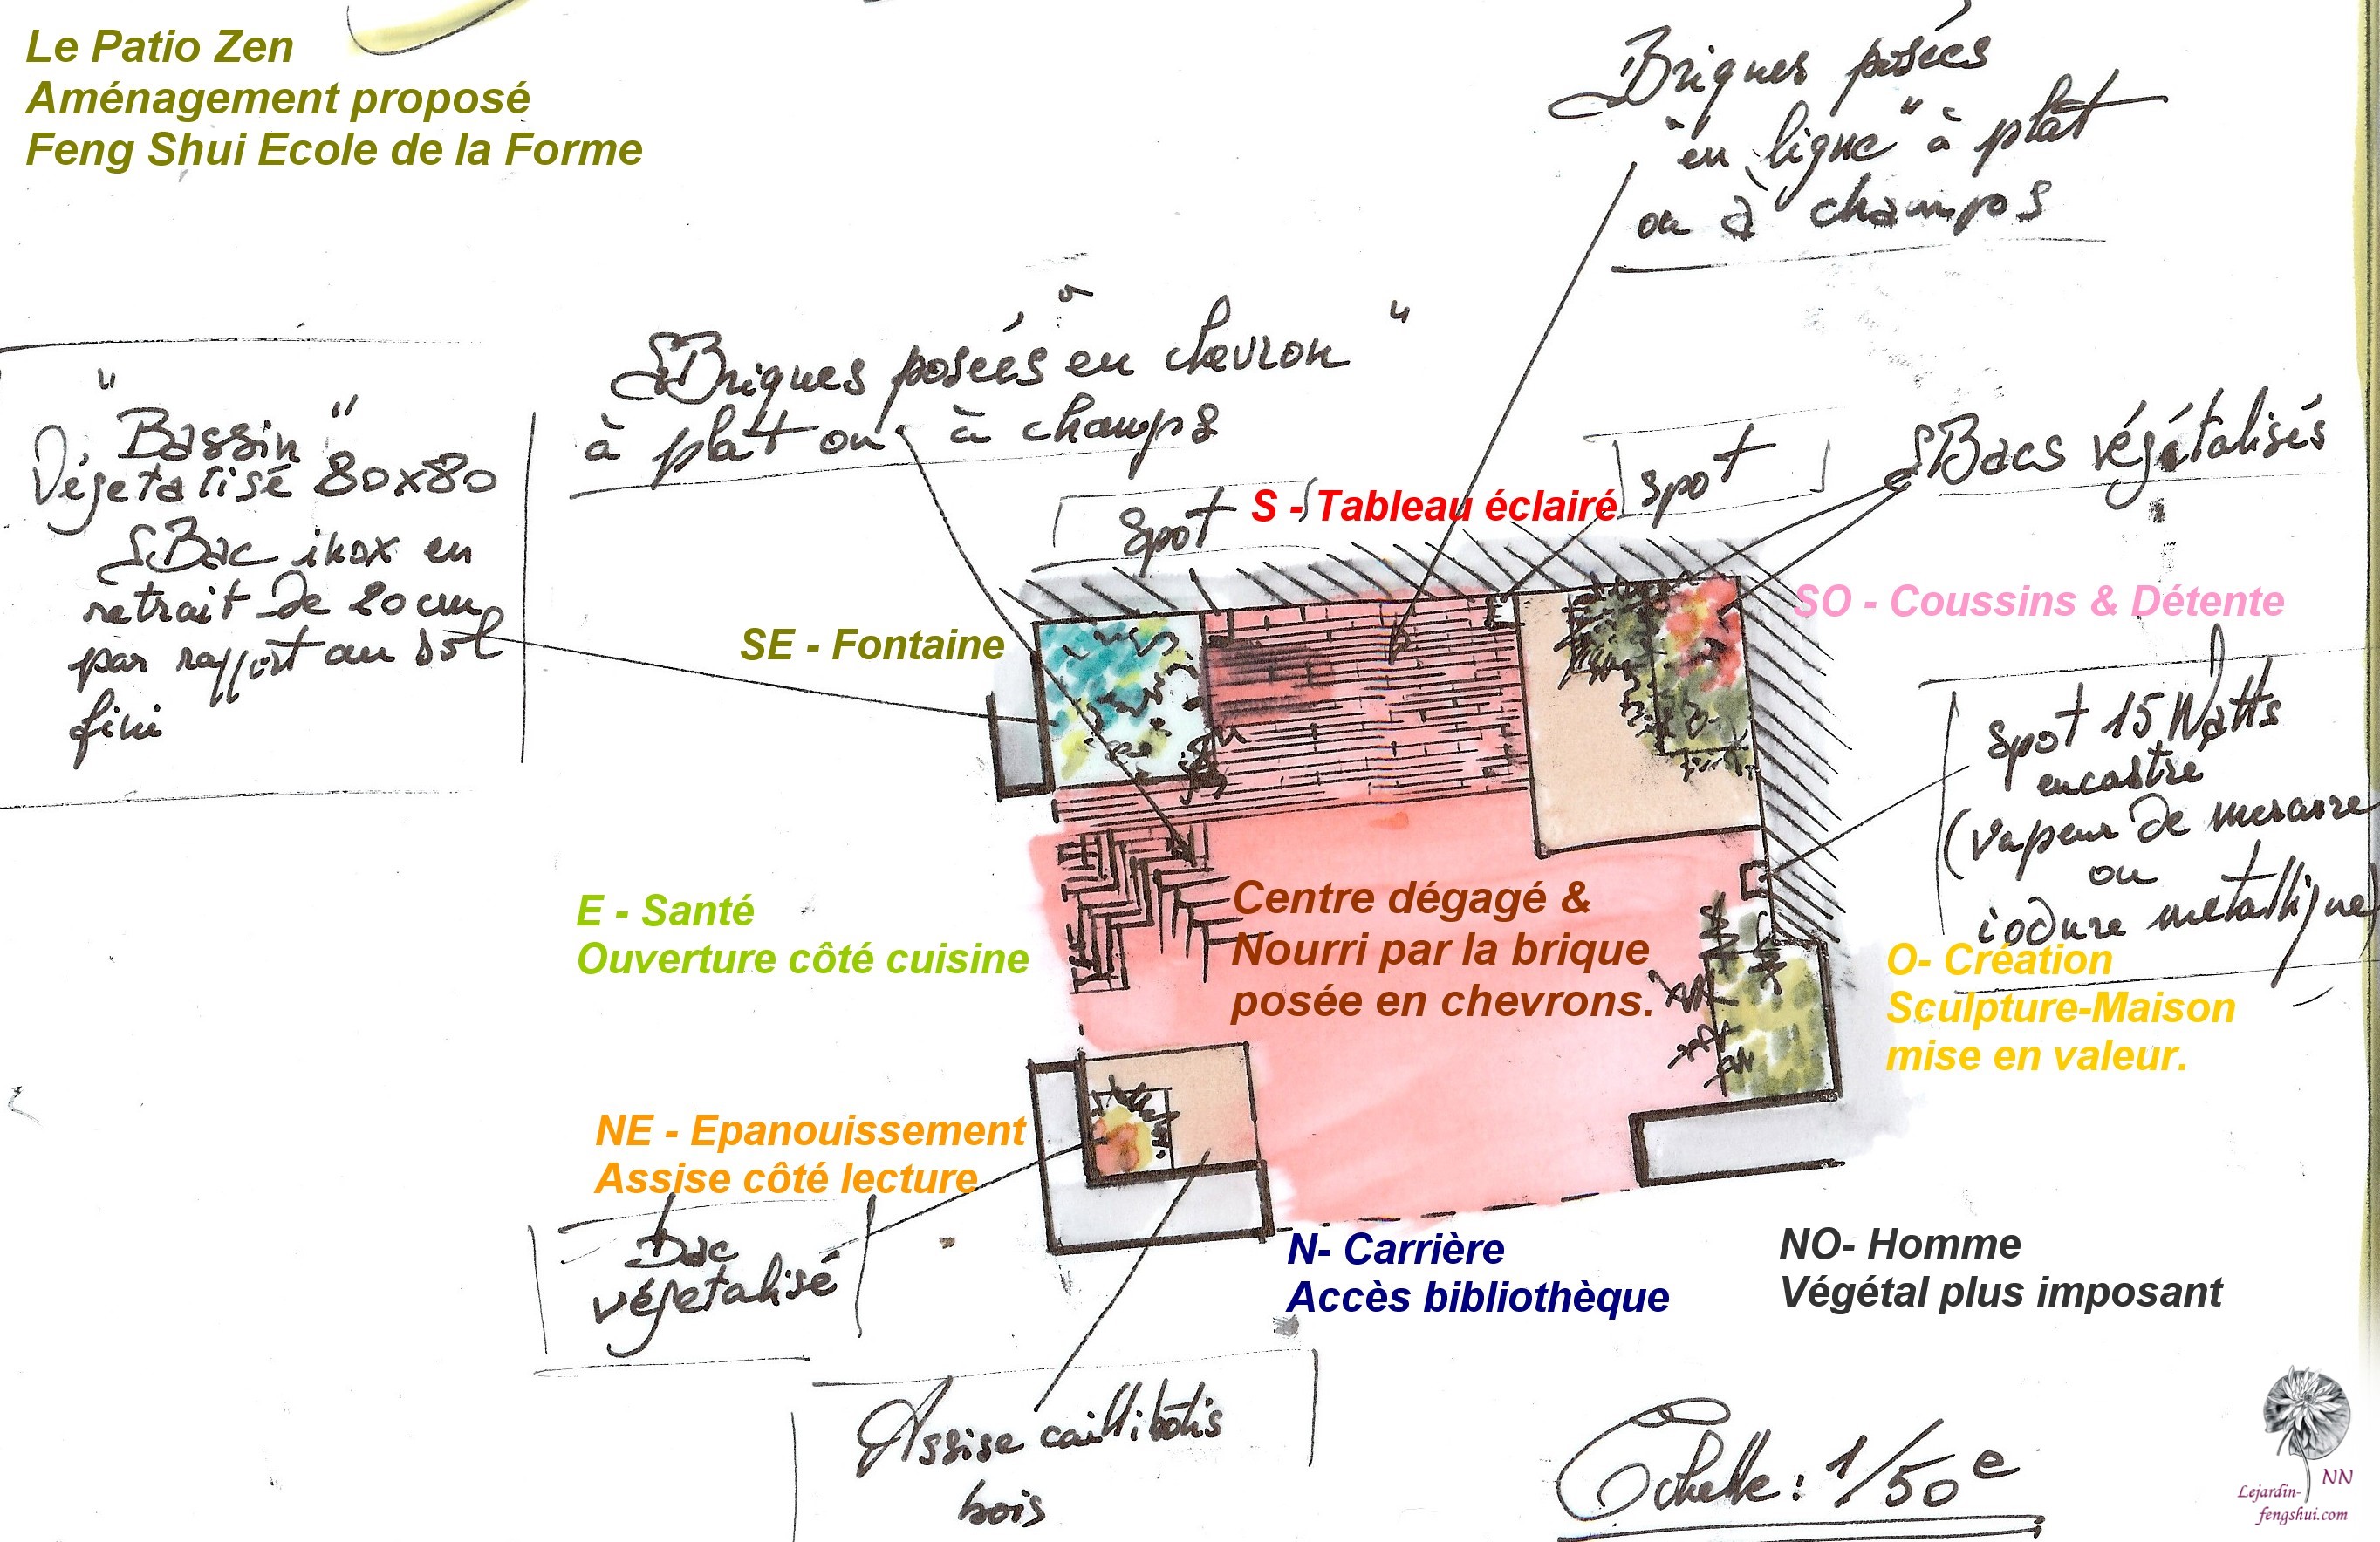 Le Patio Zen
Aménagement proposé
Feng Shui Ecole de la Forme
Briques posées
"en ligne" à plat
ou à champs
Briques posées "en chevron"
à plat ou à champs
"Bassin"
Végétalisé 80x80
Bac inox en
retrait de 20cm
par rapport au sol
fini
Spot
S - Tableau éclairé
spot
Bacs végétalisés
SE - Fontaine
SO - Coussins & Détente
Spot 15 Watts
encastré
(vapeur de mercure
ou
iodure métallique)
E - Santé
Ouverture côté cuisine
Centre dégagé &
Nourri par la brique
posée en chevrons.
O- Création
Sculpture-Maison
mise en valeur.
NE - Epanouissement
Assise côté lecture
Bac
végétalisé
N- Carrière
Accès bibliothèque
NO- Homme
Végétal plus imposant
Assise caillibotis
bois
Echelle : 1/50e
NN
Lejardin-
fengshui.com